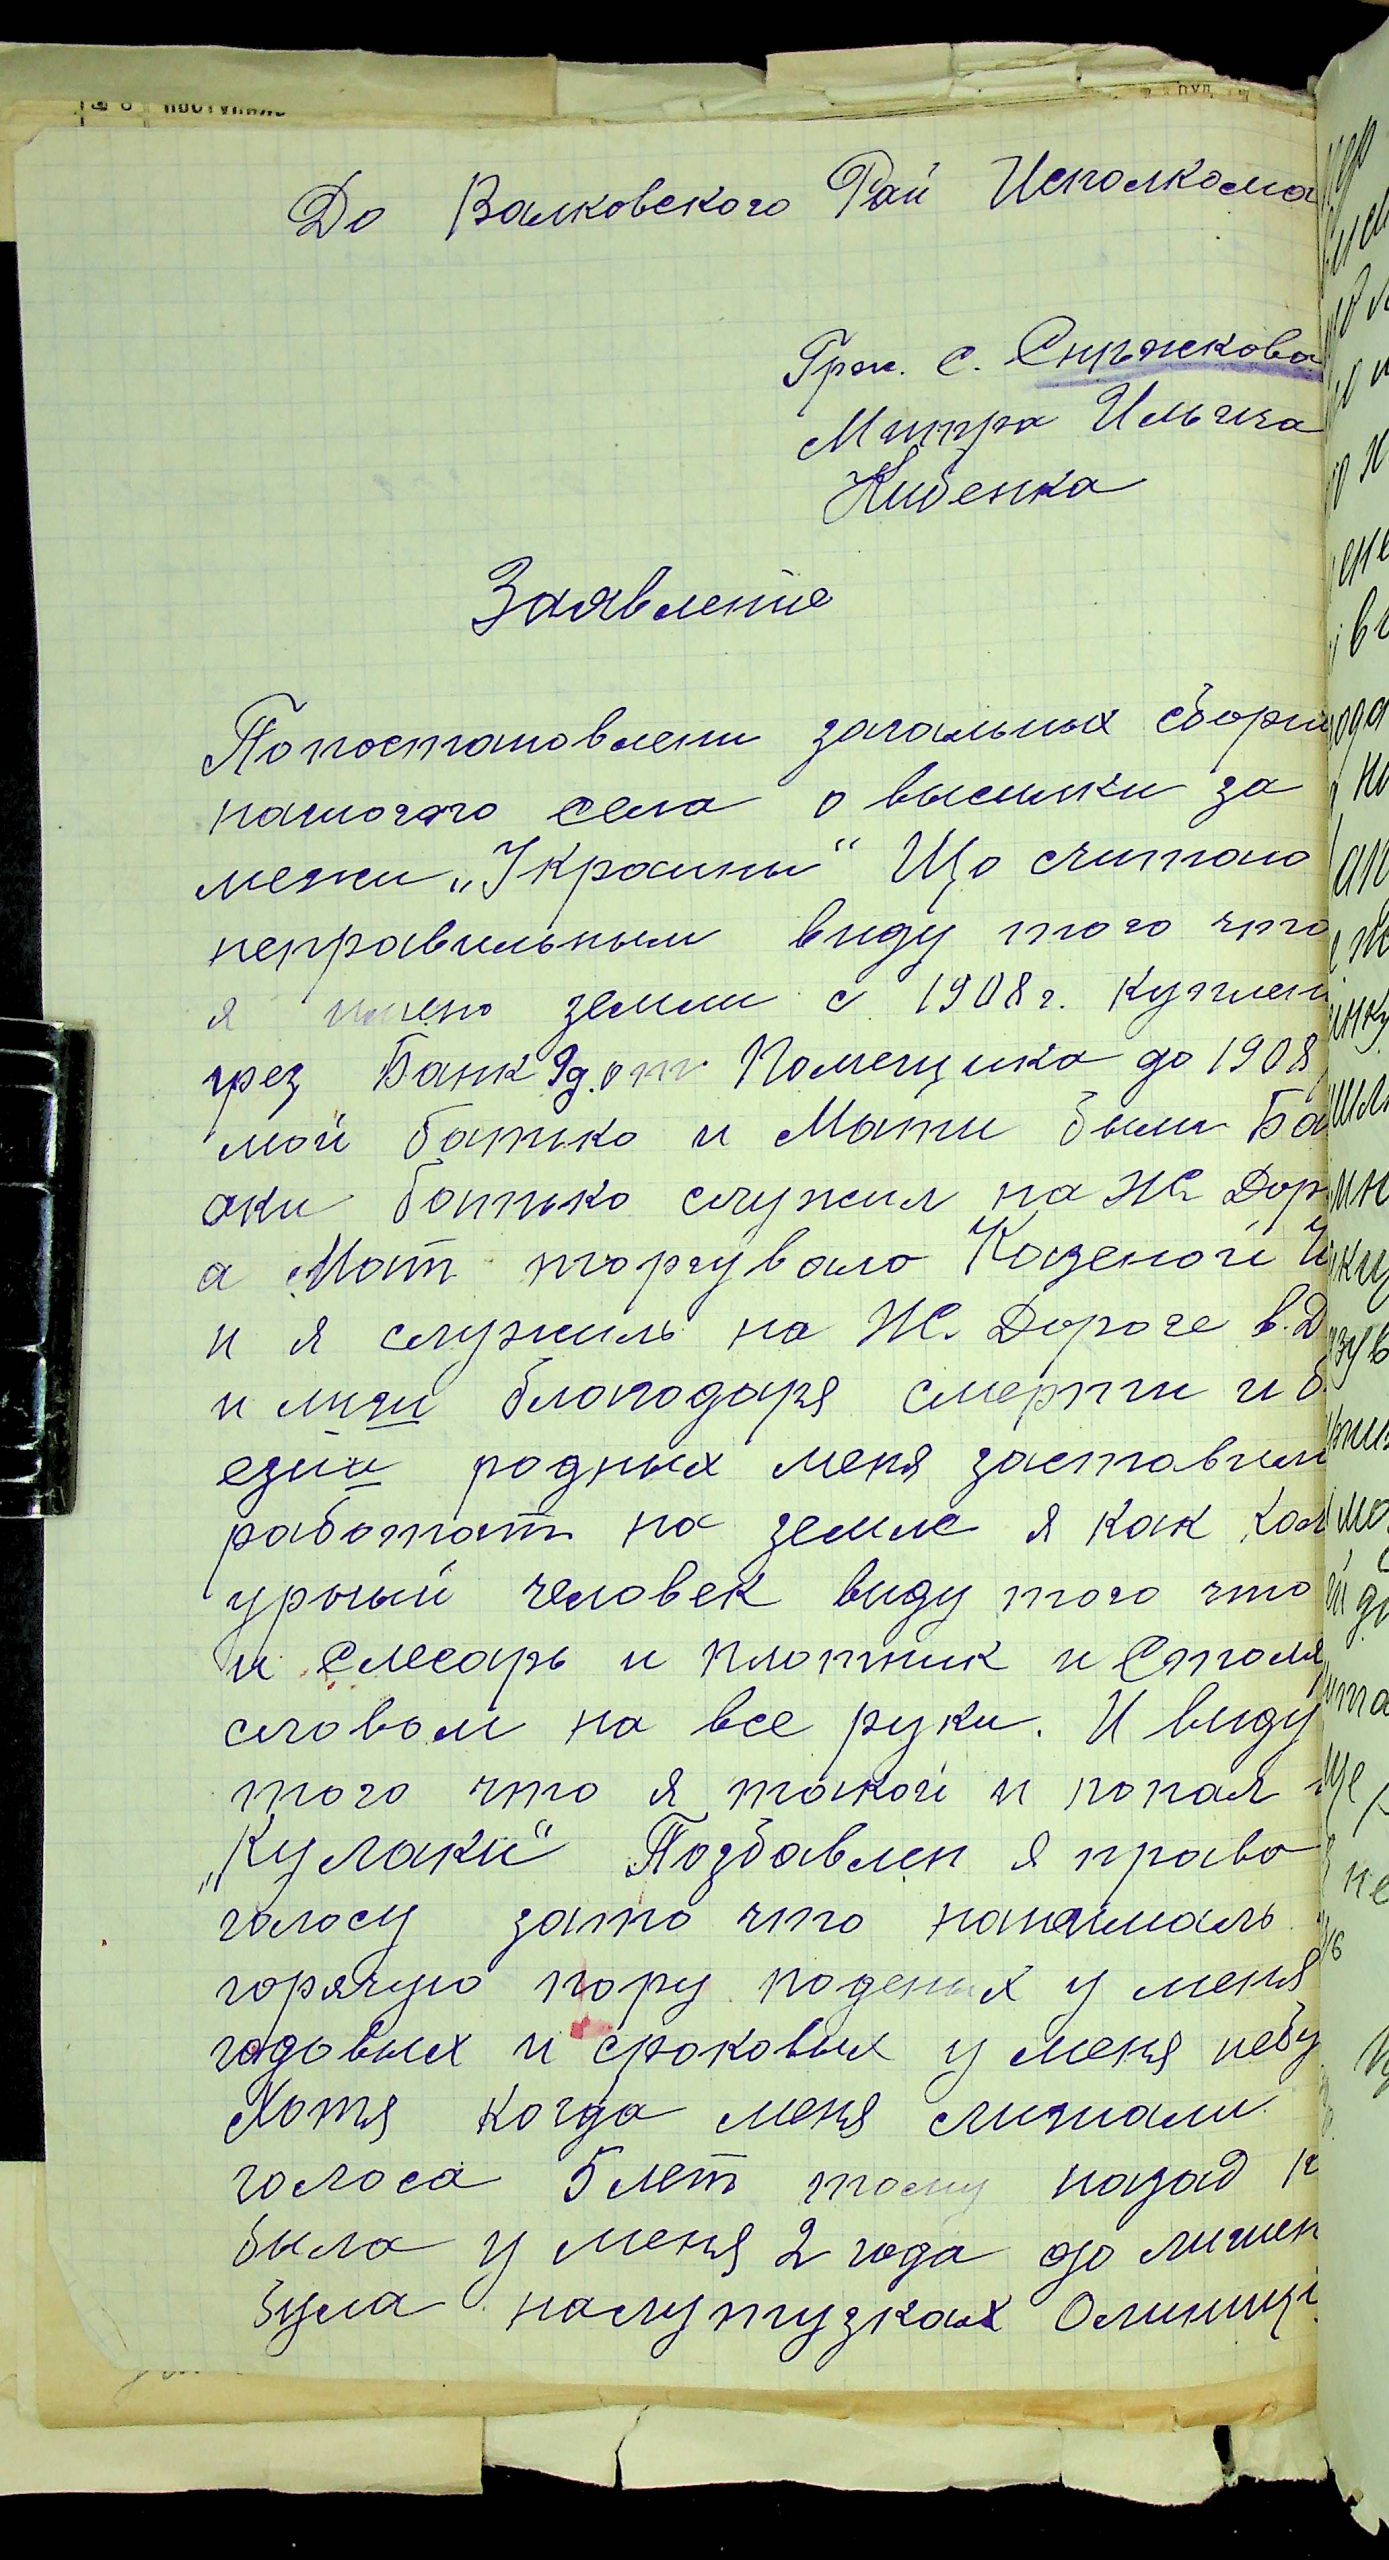 До Валковского Рай Исполкома
Грж. с. Снѣжкова
Митра Ильича
Кибенка
Заявление
Попостановлени загальных сборни
нашогого села о высилки за
межи „Украины“ Що считаю
неправильным виду того что
я имею земли с 1908 г. куплен
чрез Банк 9д. от Помещика до 1908
мой батько и Мати были Ба
аки батько служил на Ж. Дор
а Мат торгувала Казеной
и я служиль на Ж. Дороге в. Д
и лиги благодаря смерти и б
езии родных меня заставили
работат на земле я как кал
урный человек виду того что
и слесарь и плотник и Столя
словом на все руки. И виду
того что я такой и попал
„Кулаки“ Позбавлен я право
голосу зато что нанималь
горячую пору поденых у меня
годовых и сроковых у меня небу
Хотя когда меня лишали
голоса 5 лет тому назад н
была у меня 2 года до лишен
була наслугузках Олиниц